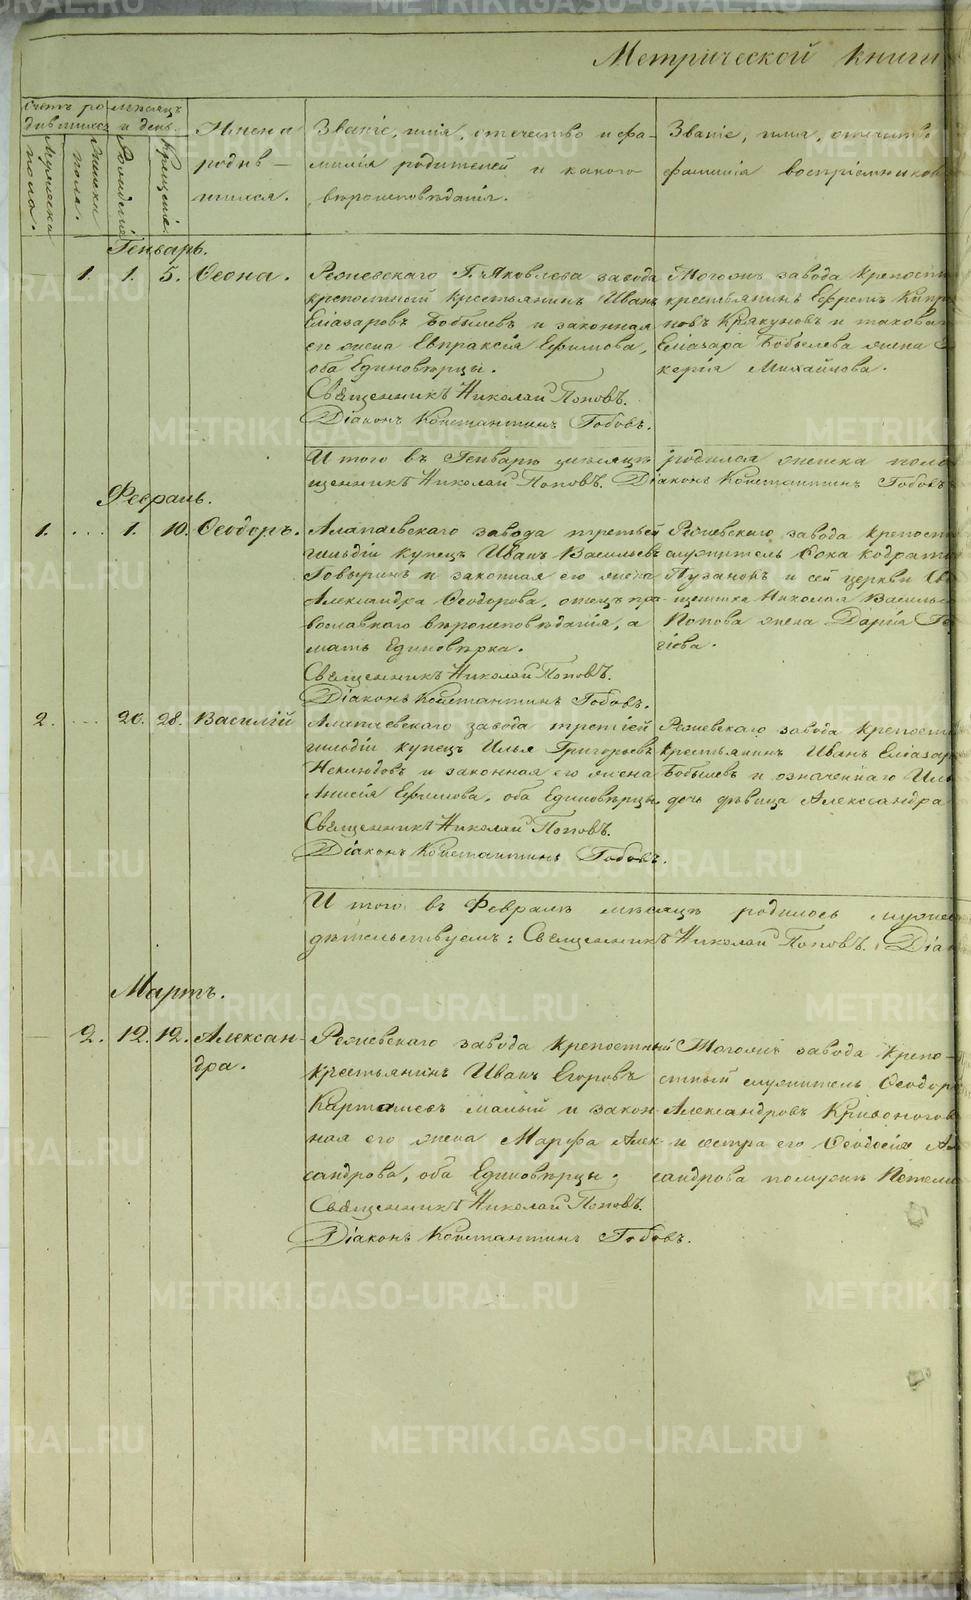 Метрической книги
Счетъ ро-
дившихся
Мужеска пола.
Женска пола.
мѣсяцъ
и день.
Рожденія
Крещенія.
Имена
родив-
шихся.
Званіе, имя, отечество и фа-
милія родителей и какого
вѣроисповѣданія.
Званіе, имя, отечество
фамилія воспріемников
Генварь.
1. 1. 5. Ѳеона.
Режевскаго Г. Яковлева завода
крепостный крестьянинъ Иванъ
Еліазаровъ Бобылевъ и законная
его жена Евпраксія Ефимова,
оба Единовѣрцы.
Священникъ Николай Поповъ.
Діаконъ Константинъ Гобовъ.
Тогожъ завода крепостн
крестьянинъ Ефремъ Кипр
новъ Крякуновъ и таковаг
Еліазара Бобылева жена
керія Михайлова.
И того въ Генварѣ мѣсяцѣ родился женска пола
щенникъ Николай Поповъ. Діаконъ Константинъ Гобовъ
Февраль.
1. ... 1. 10. Ѳеодоръ.
Алапаевскаго завода третьей
гильдіи купецъ Иванъ Васильевъ
Говыринъ и законная его жена
Александра Ѳеодорова, отецъ пра-
вославнаго вѣроисповѣданія, а
мать Единовѣрка.
Священникъ Николай Поповъ.
Діаконъ Константинъ Гобовъ.
Режевскаго завода крепостн
служитель Ѳока Кодрать
Пузановъ и сей церкви Св
щенника Николая Василье
Попова жена Дарія Ге
гіева.
2. ... 20. 28. Василій
Алапаевскаго завода третіей
гильдіи купецъ Илья Григорьевъ
Неклюдовъ и законная его жена
Анисія Ефимова, оба Единовѣрцы.
Священникъ Николай Поповъ.
Діаконъ Константинъ Гобовъ.
Режевскаго завода крепостн
крестьянинъ Иванъ Еліазар
Бобылевъ и означеннаго Иль
дочь дѣвица Александра
И того въ Февралѣ мѣсяцѣ родилось мужес
дѣтельствуемъ: Священникъ Николай Поповъ. Діак
Мартъ.
2. 12. 12. Алексан-
дра.
Режевскаго завода крепостный
крестьянинъ Иванъ Егоровъ
Карташевъ малый и закон-
ная его жена Марфа Алек-
сандрова, оба Единовѣрцы;
Священникъ Николай Поповъ.
Діаконъ Константинъ Гобовъ.
Тогожъ завода крепо-
стный служитель Ѳеодоръ
Александровъ Кривоногов
и сестра его Ѳеодосія Ал
сандрова помужѣ
METRIKI.GASO-URAL.RU